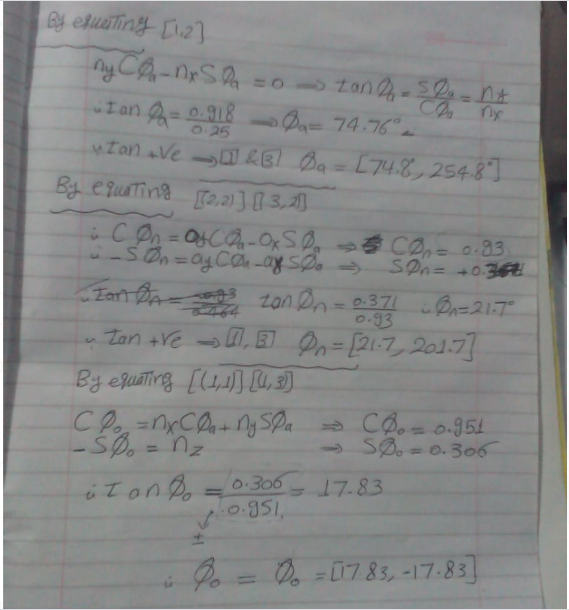 By equating [1,2]
nyCØa - nxSØa = 0 → tanØa = SØa/CØa = ny/nx
∴ tan Øa = 0.918/0.25 → Øa = 74.76°
∵ tan +ve → [1] & [3] Øa = [74.8, 254.8°]
By equating [(2,2)] [(3,2)]
∴ CØn = OyCØa - OxSØa ⇒ CØn = 0.93
∴ -SØn = ayCØa - axSØa ⇒ SØn = +0.
∴ tanØn = 0.371/0.93 ∴ Øn = 21.7°
∵ tan +ve → [1], [3] Øn = [21.7, 201.7]
By equating [(1,1)] [(1,3)]
CØo = nxCØa + nySØa ⇒ CØo = 0.951
-SØo = nz → SØo = 0.306
∴ tan Øo = 0.306/0.951 = 17.83
±
∴ Øo = Øo = [17.83, -17.83]